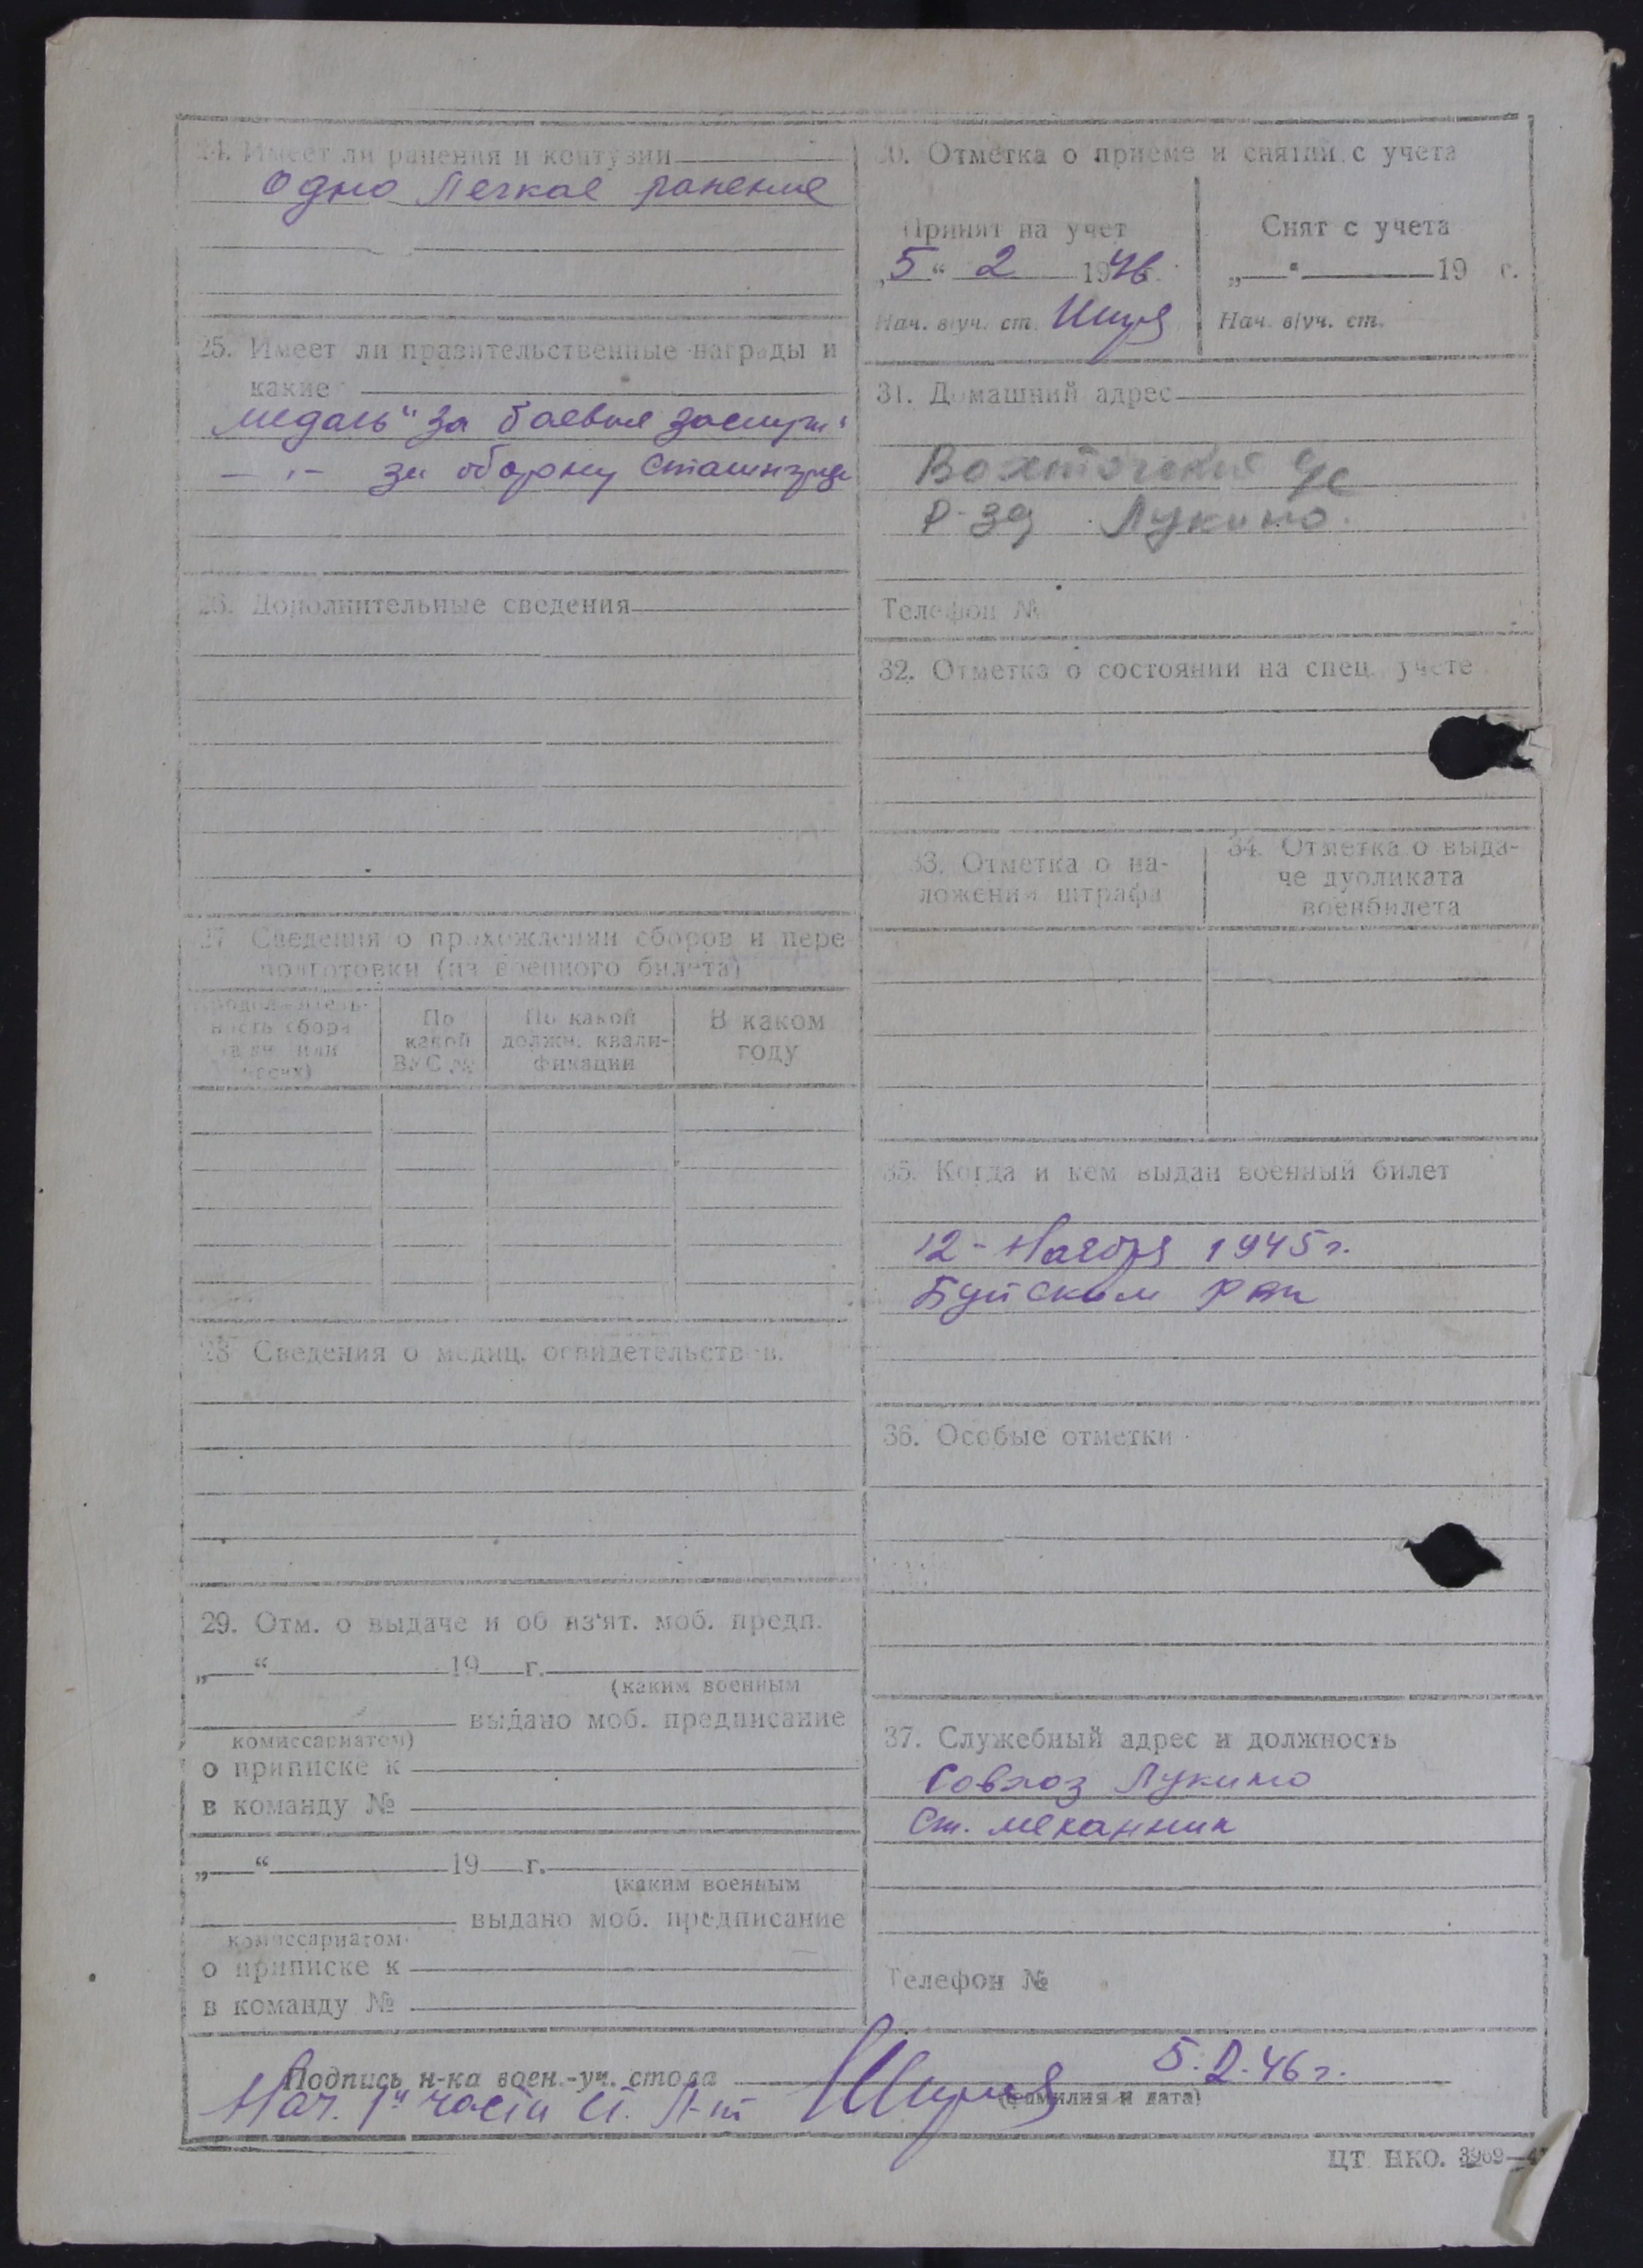 24. Имеет ли ранения и контузии
Одно легкое ранение
25. Имеет ли правительственные награды и
какие
медаль "За боевые заслуги"
— " — за оборону Сталинграда
26. Дополнительные сведения
27. Сведения о прохождении сборов и пере-
подготовки (из военного билета)
Продолжитель-
ность сбора
По
какой
ВУС №
По какой
должн. квали-
фикации
В каком
году
28. Сведения о медиц. освидетельствов.
29. Отм. о выдаче и об из'ят. моб. предп.
„ “ 19 г.
(каким военным
выдано моб. предписание
комиссариатом)
о приписке к
в команду №
„ “ 19 г.
(каким военным
выдано моб. предписание
комиссариатом)
о приписке к
в команду №
30. Отметка о приеме и снятии с учета
Принят на учет
„5“ 2 1946 г.
Нач. в/уч. ст.
Снят с учета
„ “ 19 г.
Нач. в/уч. ст.
31. Домашний адрес
с/с
Р-зд Лукино.
Телефон №
32. Отметка о состоянии на спец. учете
33. Отметка о на-
ложении штрафа
34. Отметка о выда-
че дубликата
военбилета
35. Когда и кем выдан военный билет
12 - Ноября 1945 г.
Буйским РВК
36. Особые отметки
37. Служебный адрес и должность
Совхоз Лукино
Ст. механик
Телефон №
Подпись н-ка воен.-уч. стола
5.2.46 г.
(фамилия и дата)
Нач. 1й части ст. л-т
ЦТ НКО. 3969—